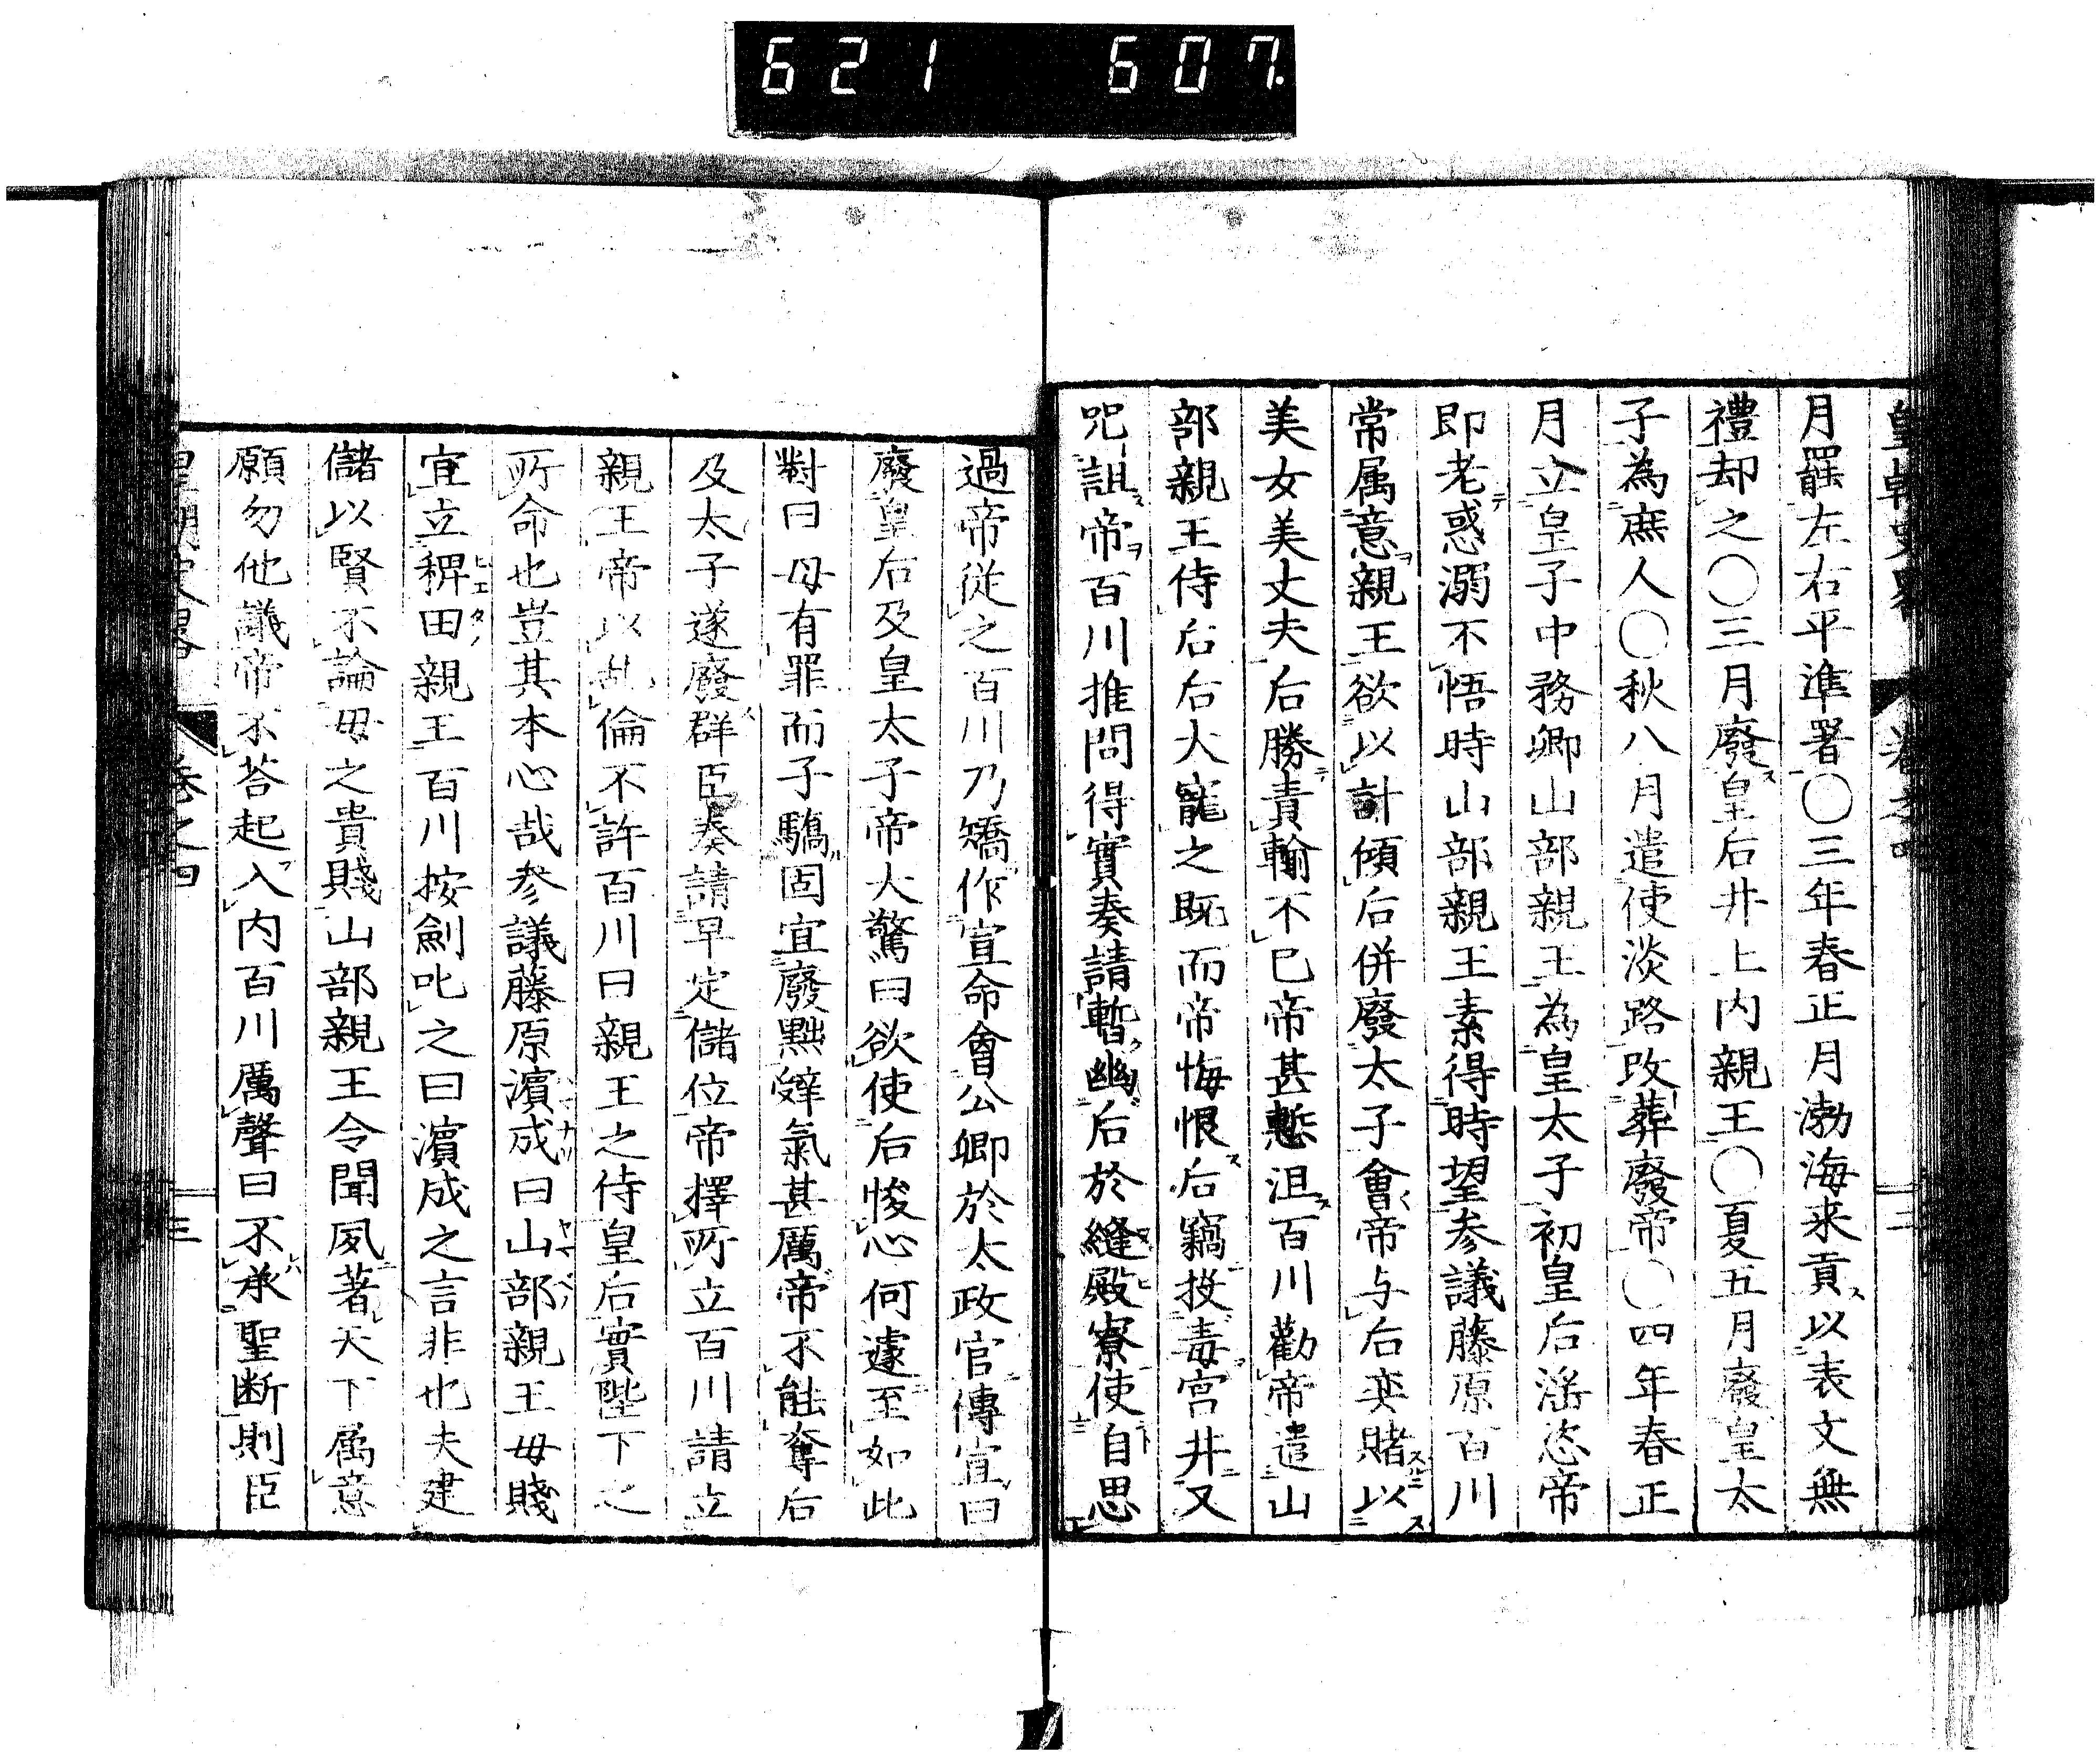 621 607.
皇朝史略 卷之四 二
月罷左右平準署〇三年春正月渤海来貢以表文無
禮却之〇三月廢皇后井上内親王〇夏五月廢皇太
子為庶人〇秋八月遣使淡路改葬廢帝〇四年春正
月立皇子中務卿山部親王為皇太子初皇后淫恣帝
即老惑溺不悟時山部親王素得時望参議藤原百川
常属意親王欲以計傾后併廢太子會帝与后奕賭以
美女美丈夫后勝責輸不已帝甚慙沮百川勸帝遣山
部親王侍后后大寵之既而帝悔恨后竊投毒宮井又
咒詛帝百川推問得實奏請暫幽后於縫殿寮使自思
過帝従之百川乃矯作宣命會公卿於太政官傳宣曰
廢皇后及皇太子帝大驚曰欲使后悛心何遽至如此
對曰母有罪而子驕固宜廢黜辞氣甚厲帝不能奪后
及太子遂廢群臣奏請早定儲位帝擇所立百川請立
親王帝以乱倫不許百川曰親王之侍皇后實陛下之
所命也豈其本心哉参議藤原濱成曰山部親王毋賤
宜立稗田親王百川按劍叱之曰濱成之言非也夫建
儲以賢不論毋之貴賤山部親王令聞夙著天下属意
願勿他議帝不荅起入内百川厲聲曰不承聖断則臣
皇朝史略 卷之四 三